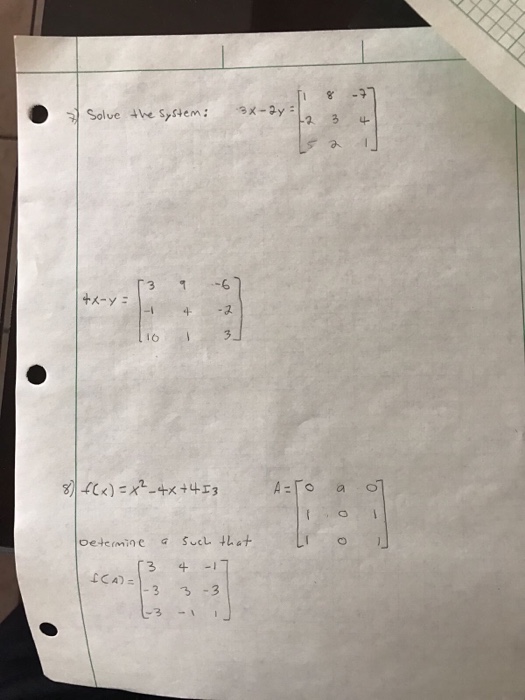 7) Solve the system: 3x-2y = [1 8 -7
-2 3 4
5 2 1]
4x-y = [3 9 -6
-1 4 -2
10 1 3]
8) f(x) = x²-4x+4I3 A = [0 a 0
1 0 1
1 0 1]
Determine a such that
f(A) = [3 4 -1
-3 3 -3
-3 -1 1]